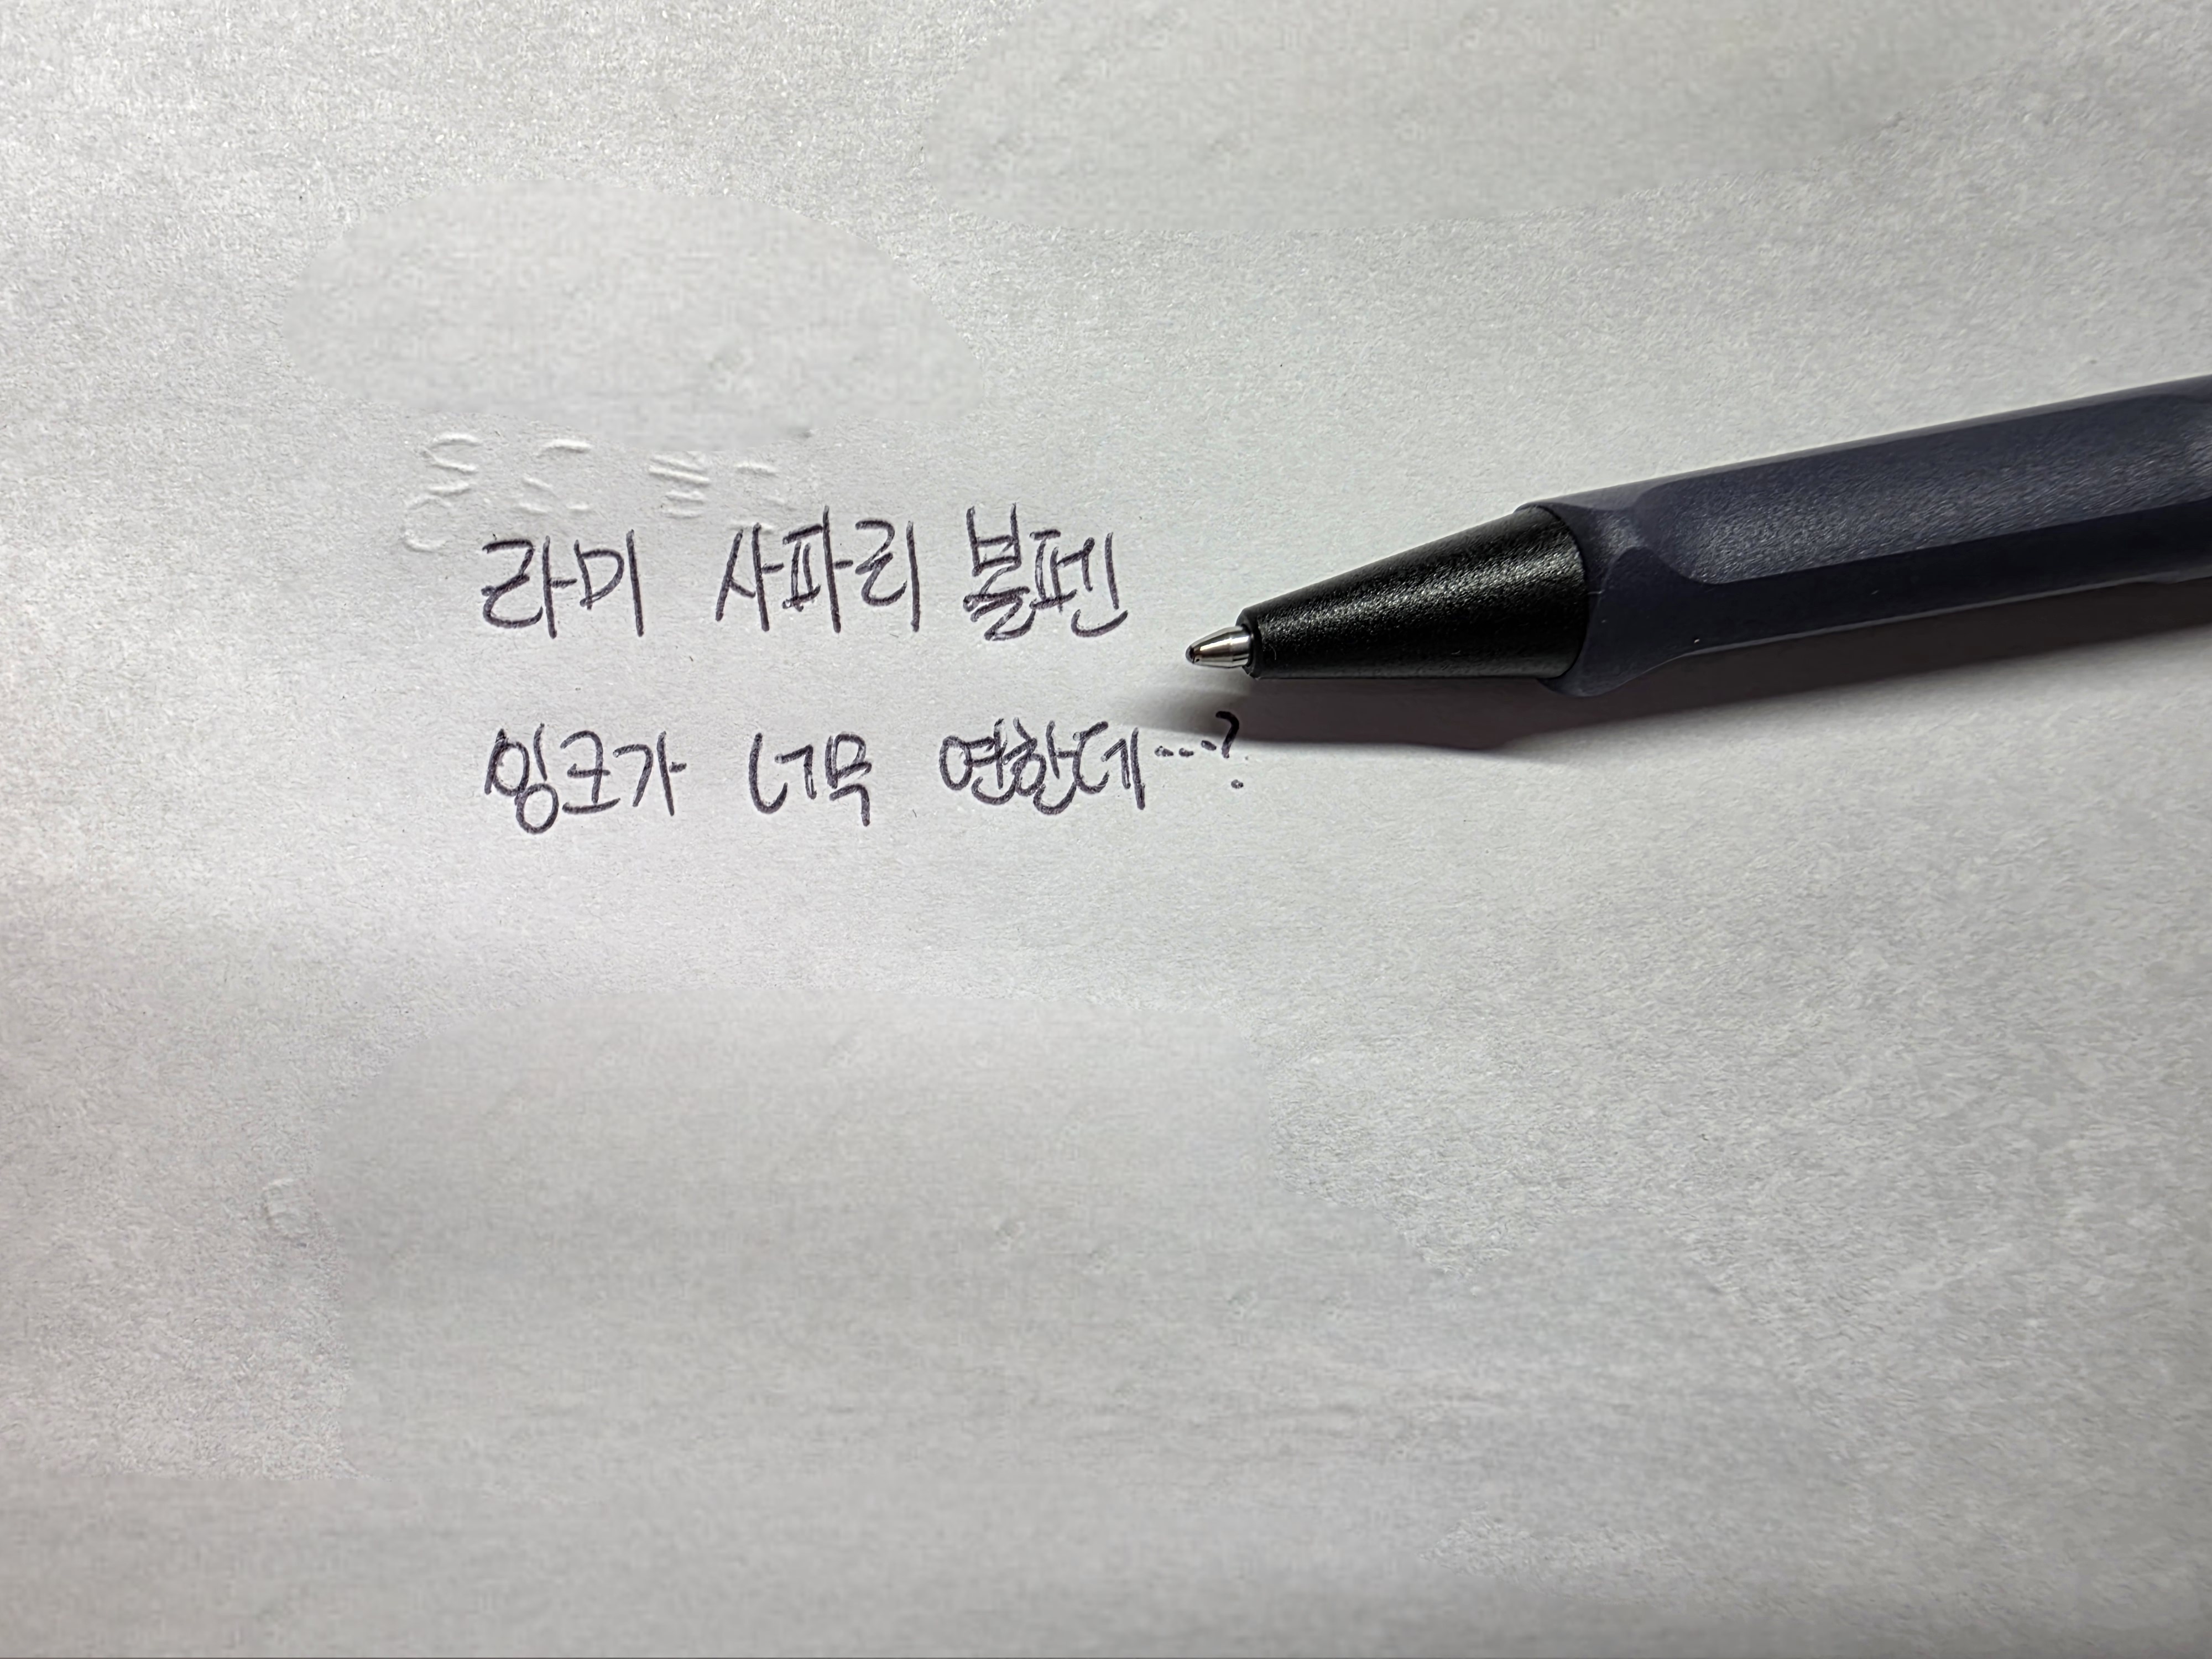 라미 사파리 볼펜
잉크가 너무 연한데…?